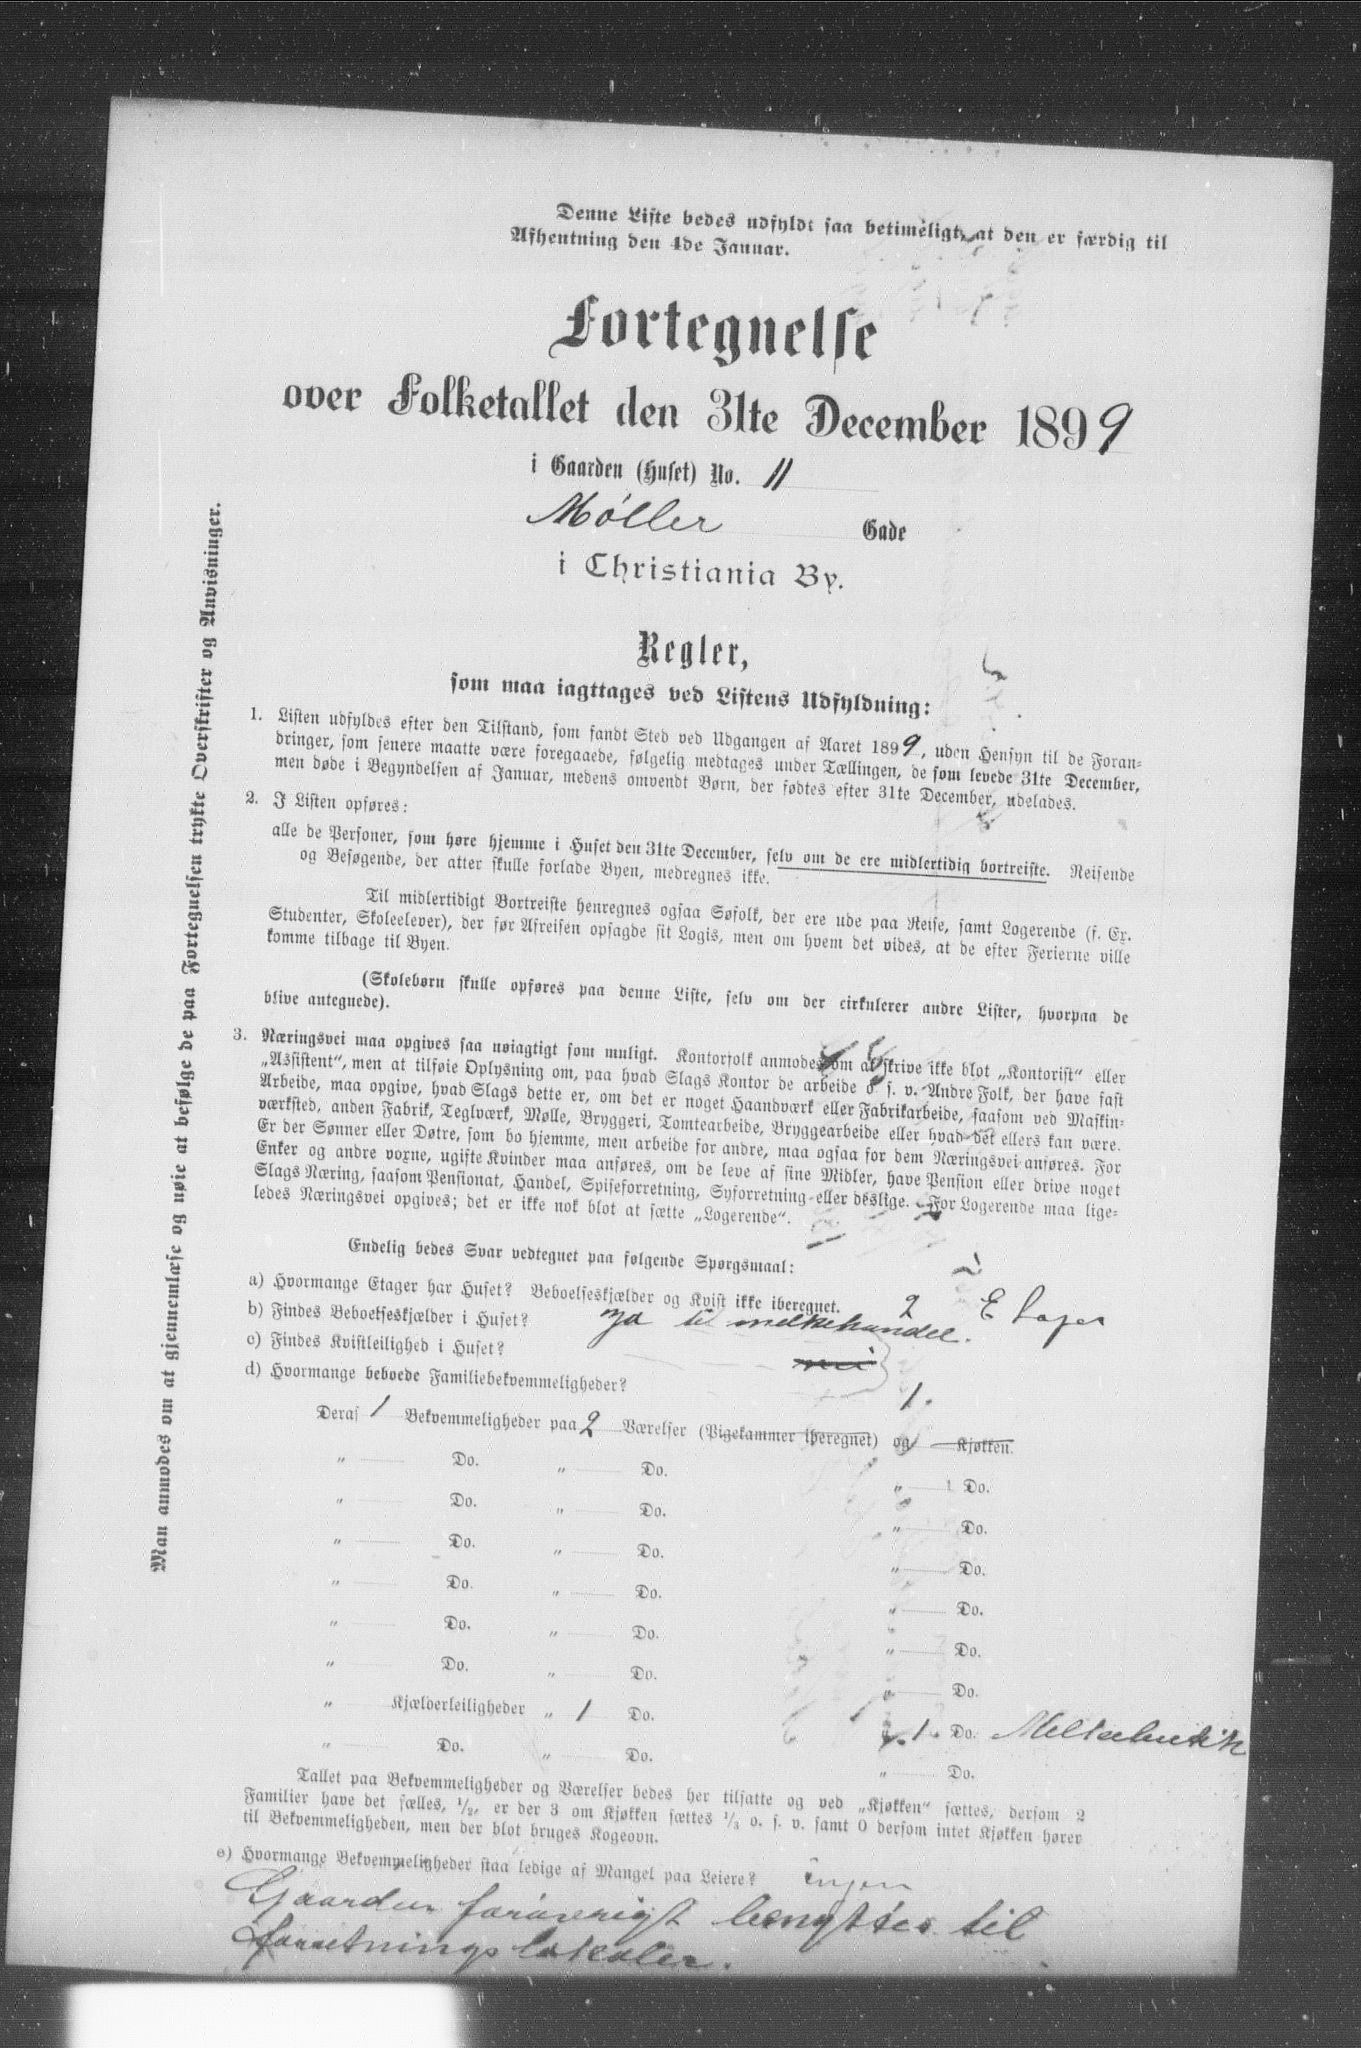 Denne Liste bedes udfyldt saa betimeligt, at den er færdig til
Afhentning den 4de Januar.
Fortegnelse
over Folketallet den 31te December 1899
i Gaarden (Huset) No. 11
Møller Gade
i Christiania By.
Regler,
som maa iagttages ved Listens Udfyldning:
1. Listen udfyldes efter den Tilstand, som fandt Sted ved Udgangen af Aaret 1899, uden Hensyn til de Foran-
dringer, som senere maatte være foregaaede, følgelig medtages under Tællingen, de som levede 31te December,
men døde i Begyndelsen af Januar, medens omvendt Børn, der fødtes efter 31te December, udelades.
2. I Listen opføres:
alle de Personer, som høre hjemme i Huset den 31te December, selv om de ere midlertidig bortreiste. Reisende
og Besøgende, der atter skulle forlade Byen, medregnes ikke.
Til midlertidigt Bortreiste henregnes ogsaa Søfolk, der ere ude paa Reise, samt Logerende (f. Ex.
Studenter, Skoleelever), der før Afreisen opsagde sit Logis, men om hvem det vides, at de efter Ferierne ville
komme tilbage til Byen.
(Skolebørn skulle opføres paa denne Liste, selv om der cirkulerer andre Lister, hvorpaa de
blive antegnede).
3. Næringsvei maa opgives saa nøiagtigt som muligt. Kontorfolk anmodes om at skrive ikke blot „Kontorist" eller
„Assistent", men at tilføie Oplysning om, paa hvad Slags Kontor de arbeide o. s. v. Andre Folk, der have fast
Arbeide, maa opgive, hvad Slags dette er, om det er noget Haandværk eller Fabrikarbeide, saasom ved Maskin-
værksted, anden Fabrik, Teglværk, Mølle, Bryggeri, Tomtearbeide, Bryggearbeide eller hvad det ellers kan være.
Er der Sønner eller Døtre, som bo hjemme, men arbeide for andre, maa ogsaa for dem Næringsvei anføres. For
Enker og andre voxne, ugifte Kvinder maa anføres, om de leve af sine Midler, have Pension eller drive noget
Slags Næring, saasom Pensionat, Handel, Spiseforretning, Syforretning eller deslige. For Logerende maa lige-
ledes Næringsvei opgives; det er ikke nok blot at sætte „Logerende".
Endelig bedes Svar vedtegnet paa følgende Spørgsmaal:
a) Hvormange Etager har Huset? Beboelseskjælder og Kvist ikke iberegnet. 2 Etager
b) Findes Beboelseskjælder i Huset? Ja til melkehandel.
c) Findes Kvistleilighed i Huset? nei
d) Hvormange beboede Familiebekvemmeligheder? 1.
Deraf 1 Bekvemmeligheder paa 2 Værelser (Pigekammer iberegnet) og Kjøkken.
„ Do. „ Do. „ Do.
„ Do. „ Do. „ Do.
„ Do. „ Do. „ Do.
„ Do. „ Do. „ Do.
„ Do. „ Do. „ Do.
„ Do. „ Do. „ Do.
„ Kjælderleiligheder „ 1 Do. „ 1. Do. Melkebutik
„ Do. „ Do. „ Do.
Tallet paa Bekvemmeligheder og Værelser bedes her tilsatte og ved „Kjøkken" sættes, dersom 2
Familier have det fælles, 1/2, er der 3 om Kjøkken sættes 1/3 o. s. v. samt 0 dersom intet Kjøkken hører
til Bekvemmeligheden, men der blot bruges Kogeovn.
e) Hvormange Bekvemmeligheder staa ledige af Mangel paa Leiere? ingen
Gaarden forøvrigt benyttes til
forretningslokaler.
Man anmodes om at gjennemlæse og nøie at befølge de paa Fortegnelsen trykte Overskrifter og Anvisninger.